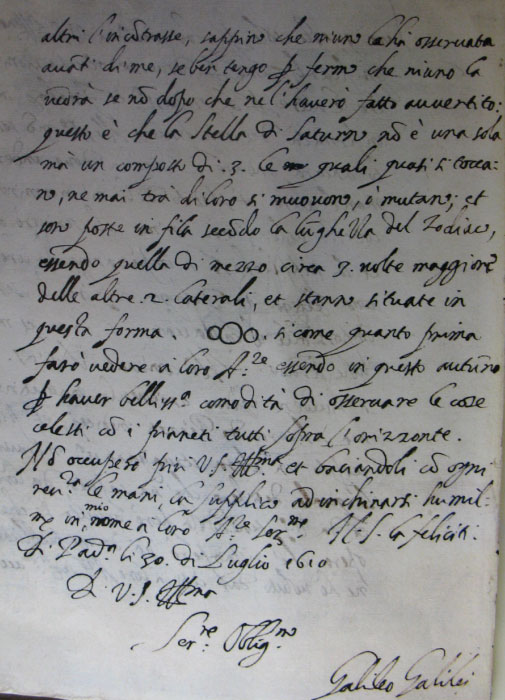 altri l'incõtrasse, sappino che niuno la ha osservata
avãti di me, se ben tengo ꝑ fermo che niuno la
vedrà se nõ dopo che ne l'haverò fatto avvertito:
questo è che la Stella di Saturno nõ è una sola
mà un composto di .3. le quali quasi si tocca-
no, ne mai trà di loro si muovono, ò mutano; et
son poste in fila secõdo la lũghezza del Zodiaco,
essendo quella di mezzo circa 3. volte maggiore
delle altre .2. laterali, et stanno situate in
questa forma. oOo. si come quanto prima
farò vedere a loro A.ze essendo in questo autũno
ꝑ haver belliss.a comodità di osservare le cose
celesti cõ i pianeti tutti sopra l'orizzonte.
Nõ occuperò più V.S. Ill.ma et baciandoli cõ ogni
rev.za le mani, la supplico ad inchinarsi humil-
m.te in mio nome a loro A.ze Ser.me N.S. la feliciti.
Di Pad.a li 30. di Luglio 1610
Di V.S. Ill.ma
Ser.re Oblig.mo
Galileo Galilei